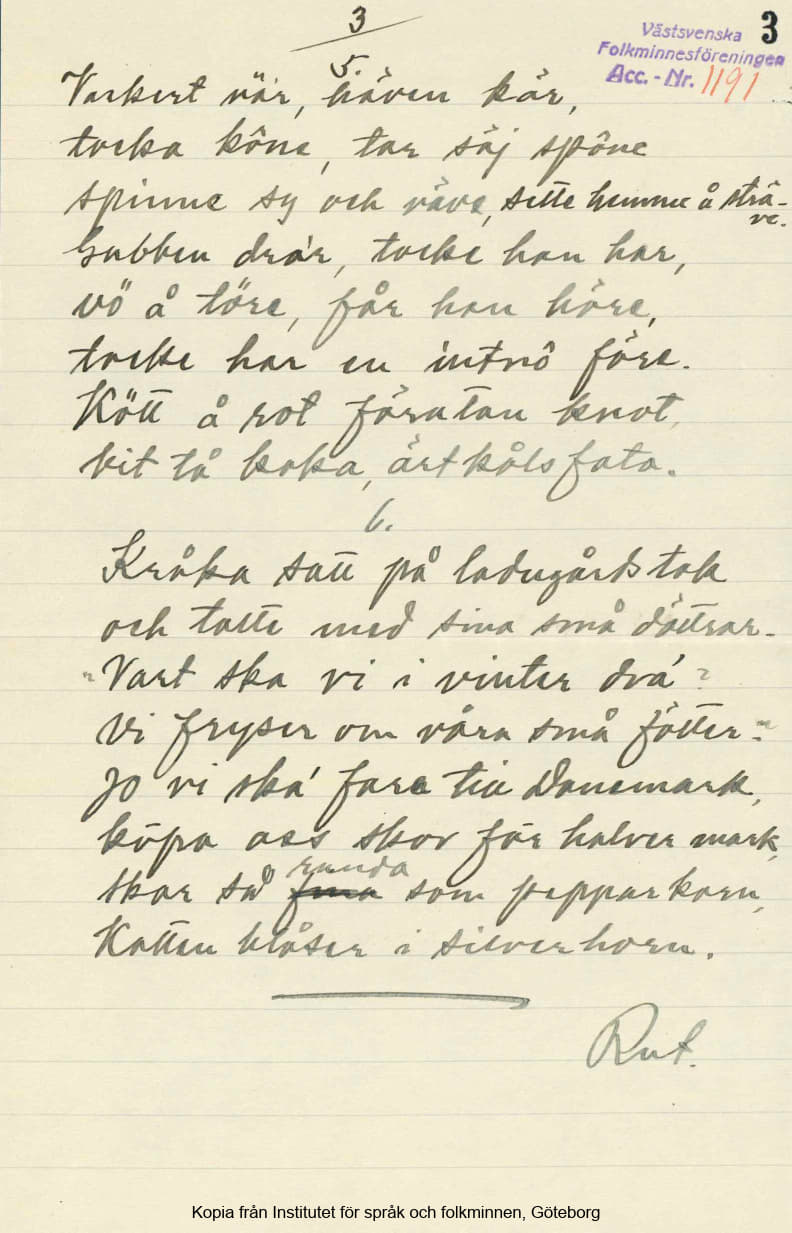 3
3
Västsvenska
Folkminnesföreningen
Acc. - Nr. 1191
5
Vackert vär, häven kär,
tocka köne, tar säj spöne
spinne sy och väve, sitte hemme å strä-
ve.
Gubben drar, tocke han har,
vö å töre, får han höre,
tocke har en intnö före.
Kött å rot förutan knot,
bit tå kaka, ärtkålsfata.
6.
Kråka satt på ladugårdstak
och tatte med sina små döttrar.
"Vart ska vi i vinter dra?
Vi fryser om våra små fötter."
Jo vi ska' fara till Danemark,
köpa oss skor för halver mark,
skor så runda som pepparkorn,
Katten blåser i silverhorn.
Rut.
Kopia från Institutet för språk och folkminnen, Göteborg